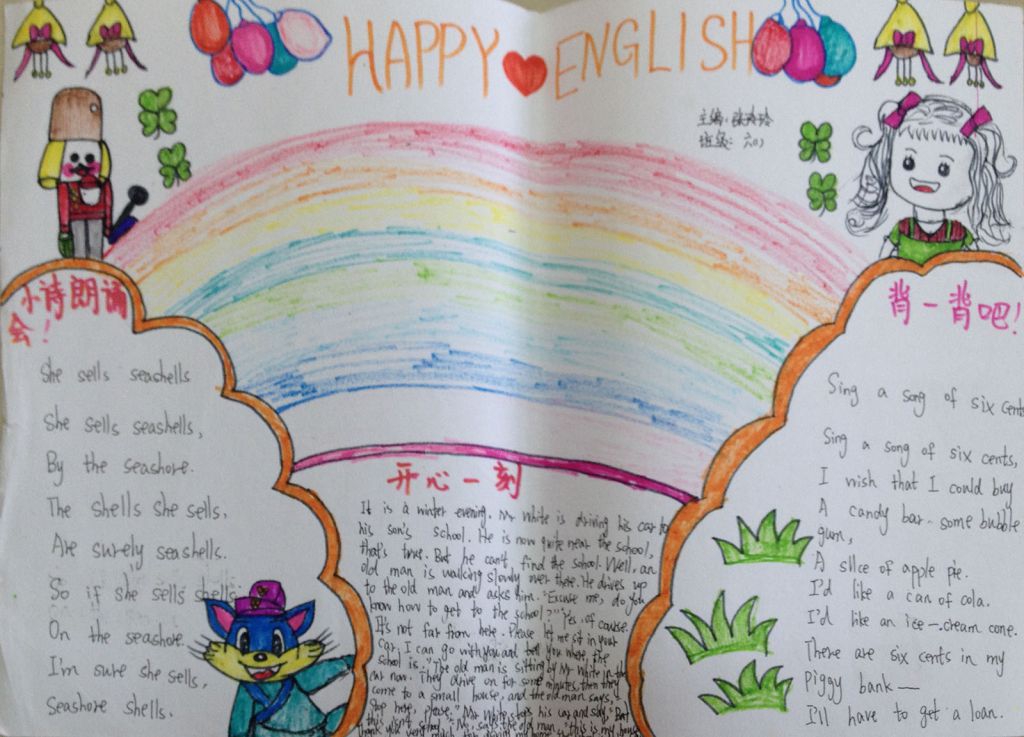 HAPPY ENGLISH
主编:
班级: 六(1)
小诗朗诵
会!
She sells seashells
She sells seashells,
By the seashore.
The shells she sells,
Are surely seashells.
So if she sells shells
On the seashore.
I'm sure she sells,
Seashore shells.
开心一刻
It is a winter evening. Mr White is driving his car to
his son's school. He is now quite near the school,
that's true. But he can't find the school. Well, an
old man is walking slowly over there. He drives up
to the old man and asks him. "Excuse me, do you
know how to get to the school?" "Yes, of course.
It's not far from here. Please let me sit in your
car, I can go with you and tell you where the
school is." The old man is sitting by Mr White in the
car now. They drive on for some minutes, then they
come to a small house, and the old man says,
"Stop here, please." Mr White stops his car and says, "But
this isn't school." "No," says the old man, "this is my house
背一背吧!
Sing a song of six cents
Sing a song of six cents,
I wish that I could buy
A candy bar. some bubble
gum,
A slice of apple pie.
I'd like a can of cola.
I'd like an ice-cream cone.
There are six cents in my
Piggy bank—
I'll have to get a loan.